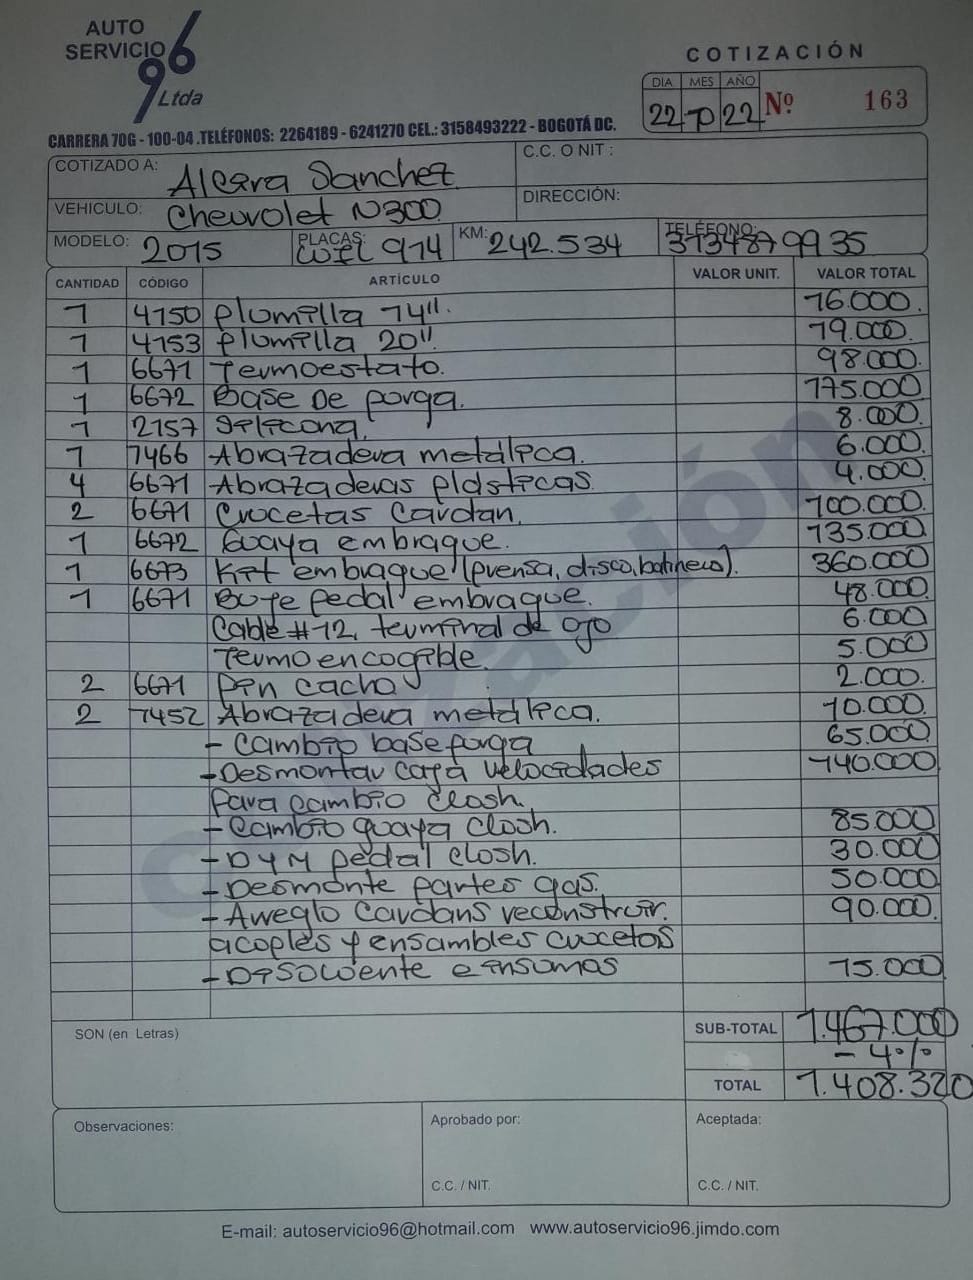 AUTO
SERVICIO 96
Ltda
COTIZACIÓN
DIA MES AÑO
22-10-22 Nº 163
CARRERA 70G - 100-04 .TELÉFONOS: 2264189 - 6241270 CEL.: 3158493222 - BOGOTÁ DC.
COTIZADO A: Alexra Sanchez C.C. O NIT :
VEHICULO: Chevrolet N300 DIRECCIÓN:
MODELO: 2015 PLACAS: WFL 914 KM: 242.534 TELÉFONO: 3134879935
CANTIDAD CÓDIGO ARTÍCULO VALOR UNIT. VALOR TOTAL
1 4150 plumilla 14". 16.000.
1 4153 plumilla 20". 19.000.
1 6671 Termoestato. 98.000.
1 6672 Base De porga. 175.000
1 2157 Silicona. 8.000.
1 1466 Abrazadera metálica. 6.000.
4 6671 Abrazaderas plásticas. 4.000.
2 6671 Crocetas Cardan. 100.000.
1 6672 Guaya embrague. 135.000.
1 6673 Kit embrague (prensa, disco, balinera). 360.000
1 6671 Buje pedal embrague. 48.000.
Cable #12, terminal de ojo 6.000
Termoencogible. 5.000.
2 6671 Pin cacho 2.000.
2 1452 Abrazadera metálica. 10.000.
- Cambio base porga 65.000.
- Desmontar caja velocidades 140.000
para cambio closh.
- Cambio guaya closh. 85.000
- D y M pedal closh. 30.000
- Desmonte partes gas. 50.000
- Arreglo Cardans reconstruir. 90.000.
acoples y ensambles crocetas
- Disolvente e insumos 15.000
Cotización
SON (en Letras)
SUB-TOTAL 1.467.000
- 4%
TOTAL 1.408.320
Observaciones: Aprobado por: Aceptada:
C.C. / NIT. C.C. / NIT.
E-mail: autoservicio96@hotmail.com www.autoservicio96.jimdo.com